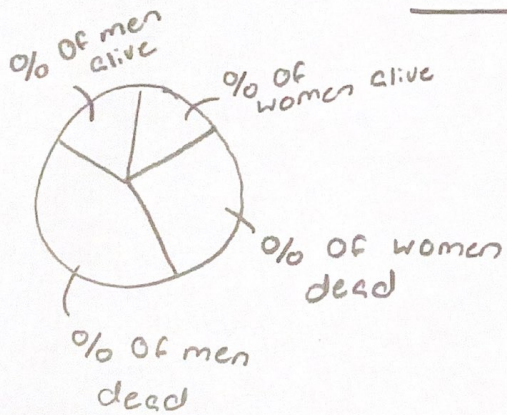 % Of men
alive
% Of
women alive
% Of women
dead
% Of men
dead